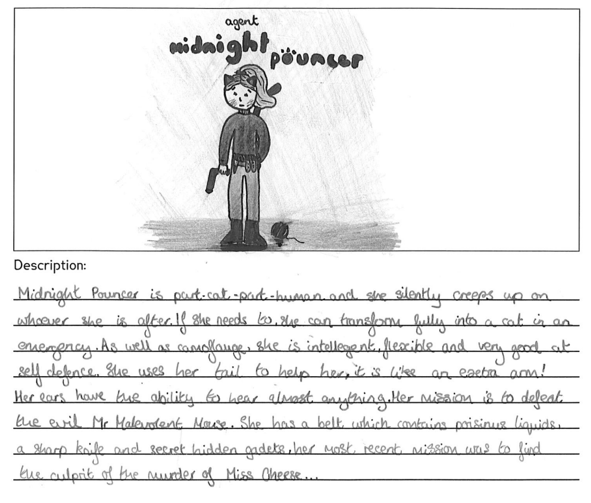 agent
midnight pöuncer
Description:
Midnight Pouncer is part-cat-part-human and she silently creeps up on
whoever she is after. If she needs to, she can transform fully into a cat in an
emergency. As well as camoflauge, she is intellegent, flexible and very good at
self defence. She uses her tail to help her, it is like an exetra arm!
Her ears have the ability to hear almost anything. Her mission is to defeat
the evil Mr Malevolent Mouse. She has a belt which contains poisinus liquids,
a sharp knife and secret hidden gadets, her most recent mission was to find
the culprit of the murder of Miss Cheese...